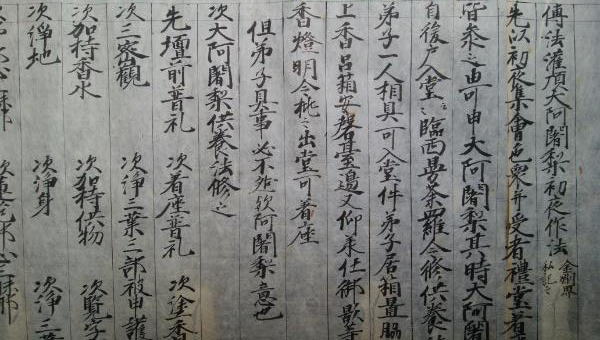 傳法灌頂大阿闍梨初夜作法 金剛界 私記之
先以初夜集會色衆并受者禮堂着
皆参之由可申大阿闍梨其時大阿闍
自後戸入堂臨西曼荼羅令修供養
弟子一人相具可入堂件弟子居相畳脇
上香呂箱安磬臺邊又仰承仕御歟等
香燈明令挑之出堂可着座
但弟子具事必不然欤阿闍梨意也
次大阿闍梨供養法修之
先壇前普礼 次着座普礼 次塗香
次三密觀 次淨三業三部被甲護
次加持香水 次加持供物 次覧字
次淨地 次淨身 次淨三業